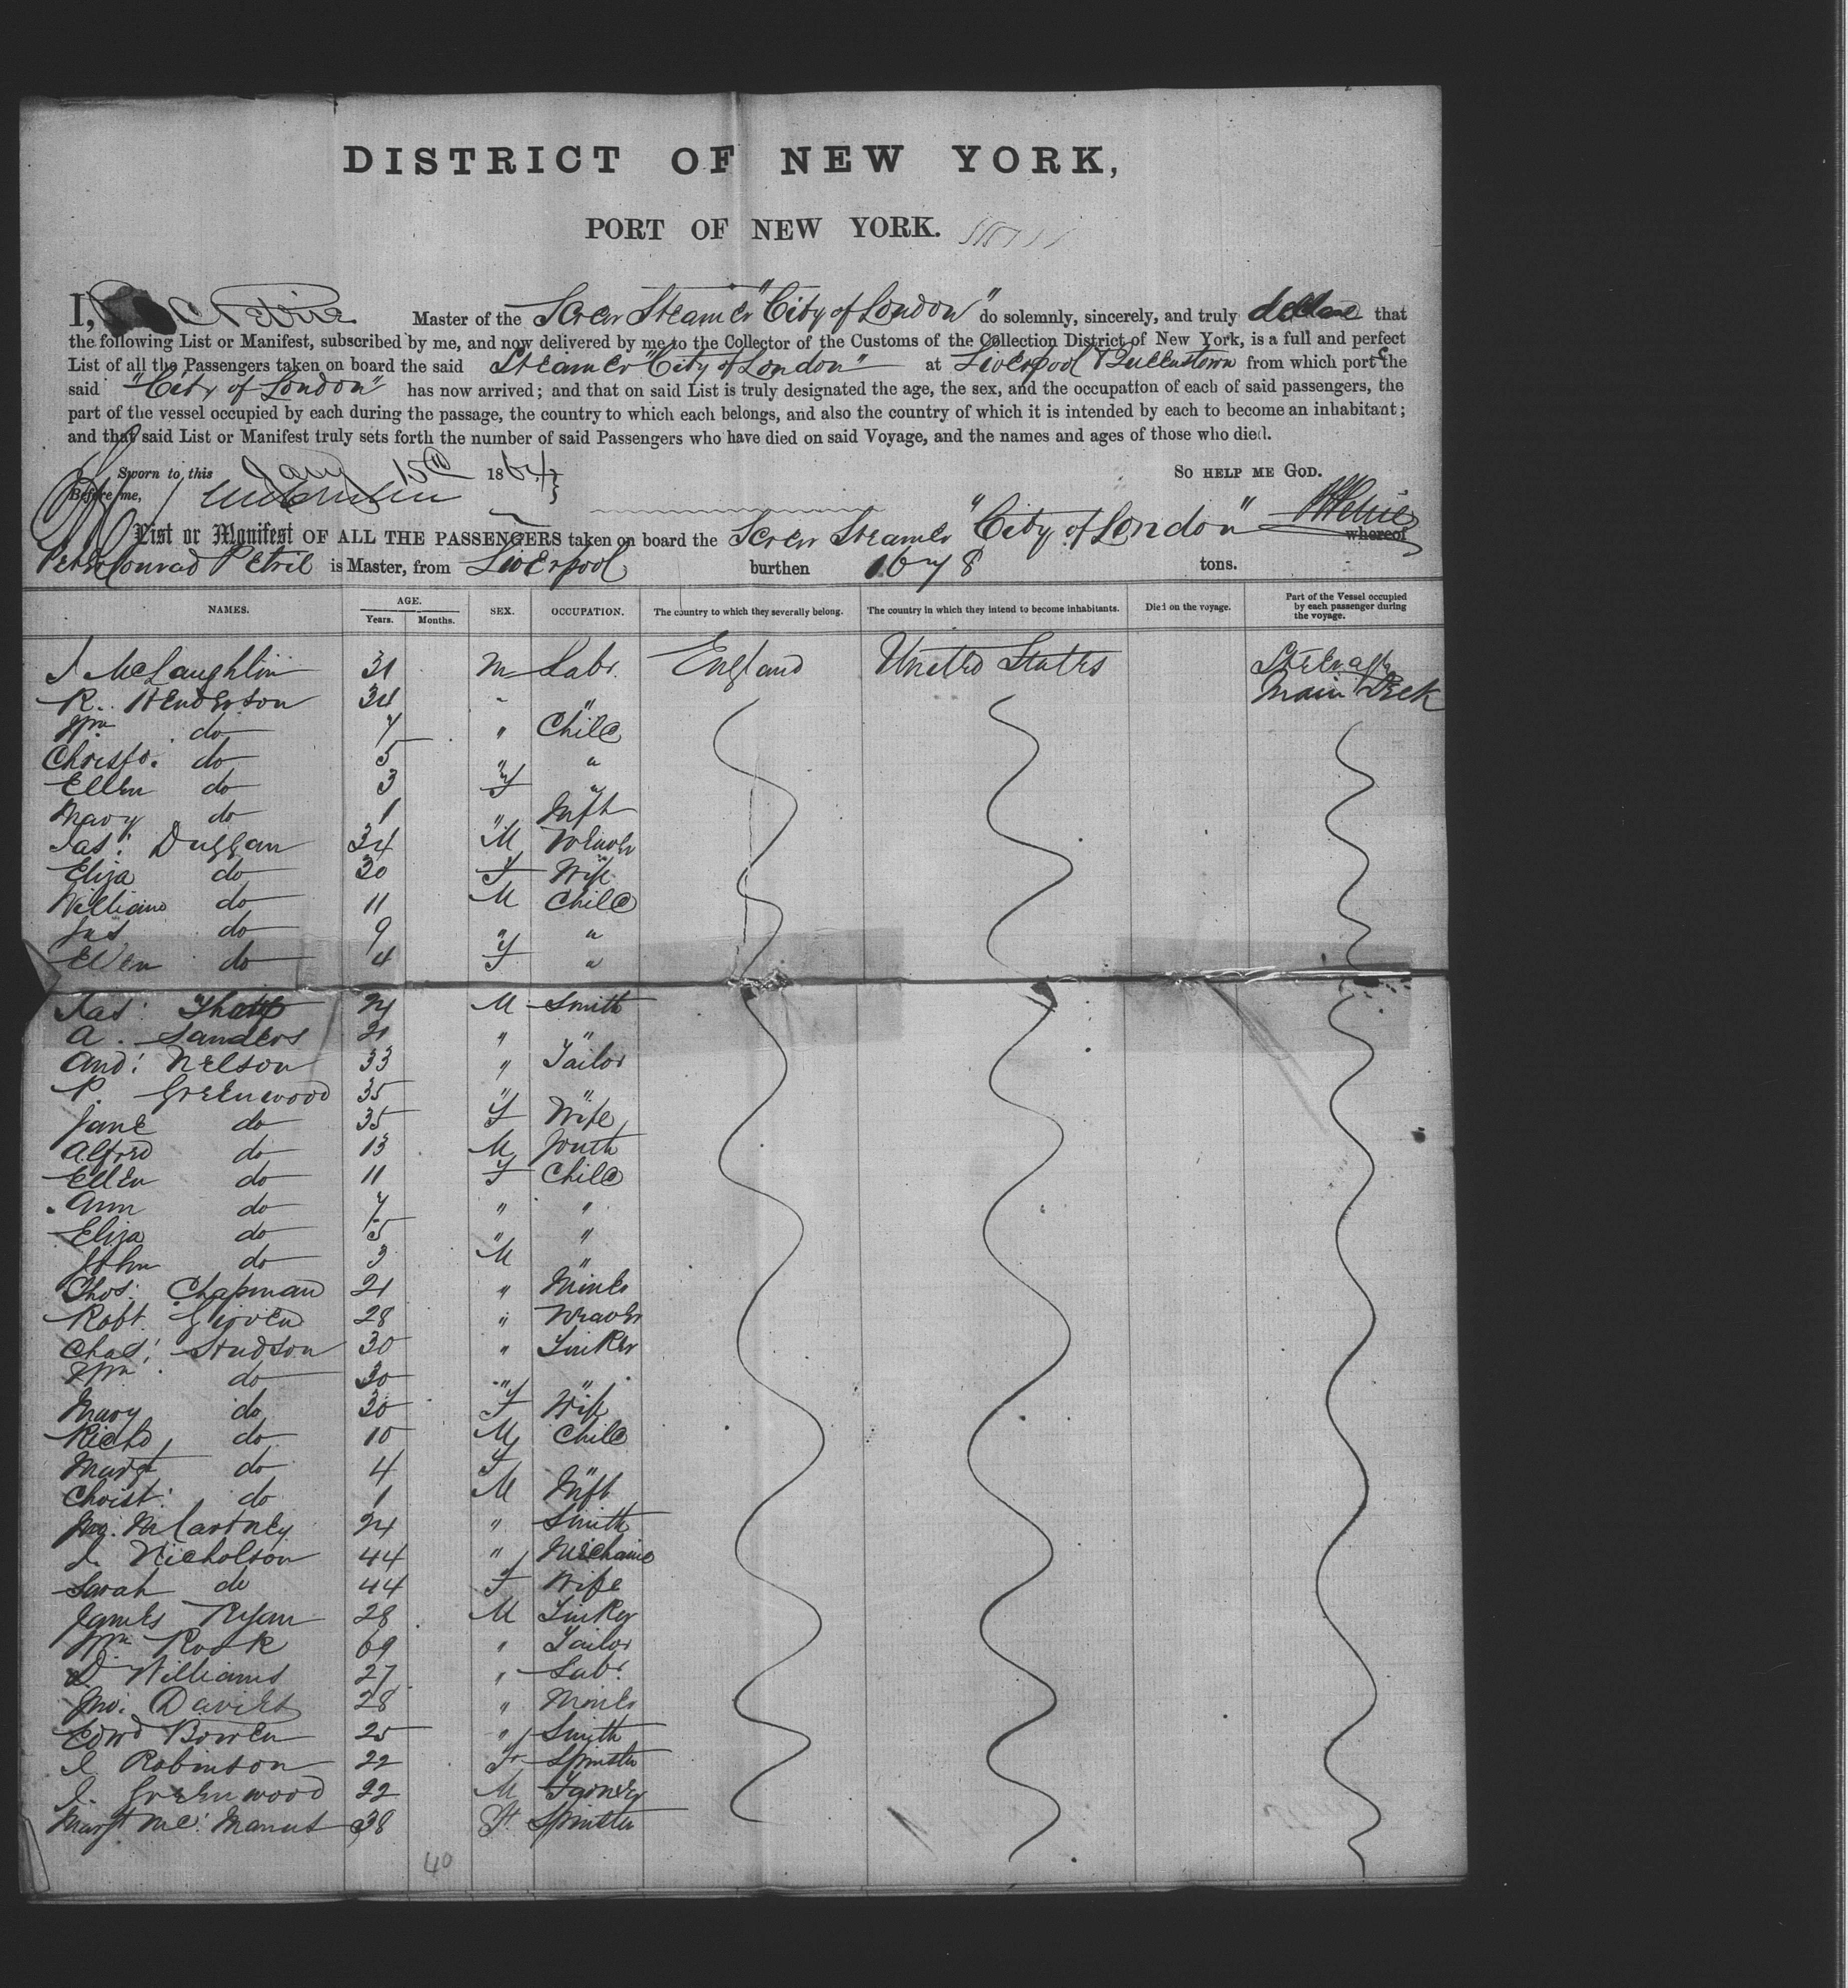 DISTRICT OF NEW YORK,
PORT OF NEW YORK.
I, Master of the Screw Steamer "City of London" do solemnly, sincerely, and truly declare that
the following List or Manifest, subscribed by me, and now delivered by me to the Collector of the Customs of the Collection District of New York, is a full and perfect
List of all the Passengers taken on board the said Steamer "City of London" at Liverpool Queenstown from which port the
said "City of London" has now arrived; and that on said List is truly designated the age, the sex, and the occupatton of each of said passengers, the
part of the vessel occupied by each during the passage, the country to which each belongs, and also the country of which it is intended by each to become an inhabitant;
and that said List or Manifest truly sets forth the number of said Passengers who have died on said Voyage, and the names and ages of those who died.
Sworn to this Jany 15th 1864 } SO HELP ME GOD.
Before me,
List or Manifest OF ALL THE PASSENGERS taken on board the Screw Steamer "City of London" whereof
Peter Conrad Petrie is Master, from Liverpool burthen 1678 tons.
NAMES. AGE. Years. Months. SEX. OCCUPATION. The country to which they severally belong. The country in which they intend to become inhabitants. Died on the voyage. Part of the Vessel occupied by each passenger during the voyage.
J McLaughlin 31 M Labr. England United States Steerage
R. Henderson 34 " " Main Deck
Wm do 7 " Child
Christo. do 5 " "
Ellen do 3 F "
Mary do 1 " Inft
Jas: Duggan 34 M Weaver
Eliza do 30 F Wife
William do 11 M Child
Jas do 9 " "
Ellen do 4 F "
Jas: 24 M Smith
A. Sanders 21 " "
And: Nelson 33 " Tailor
P. Greenwood 35 " "
Jane do 35 F Wife
Alfred do 13 M Youth
Ellen do 11 F Child
Ann do 7 " "
Eliza do 5 " "
John do 3 M "
Thos: Chapman 21 " Miner
Robt. Girven 28 " Weaver
Chas: Hudson 30 " Tinker
Wm do 30 " "
Mary do 30 F Wife
Richd do 10 M Child
Margt do 4 F "
Christ: do 1 M Inft
Jno: McCartney 24 " Smith
J. Nicholson 44 " Mechanic
Sarah do 44 F Wife
James Ryan 28 M Tinker
Wm Rook 69 " Tailor
D. Williams 27 " Labr.
Jno: Davies 28 " Miner
Edwd Bowen 25 " Smith
Robinson 22 F Spinster
J. Greenwood 22 M
Margt Mc: Manus 38 F Spinster
40